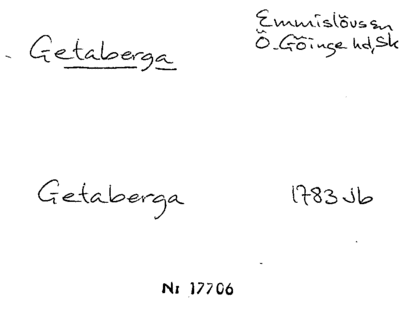 Getaberga
Emmislövs sn
Ö. Göinge hd, Sk
Getaberga
1783 Jb
Nr 17706